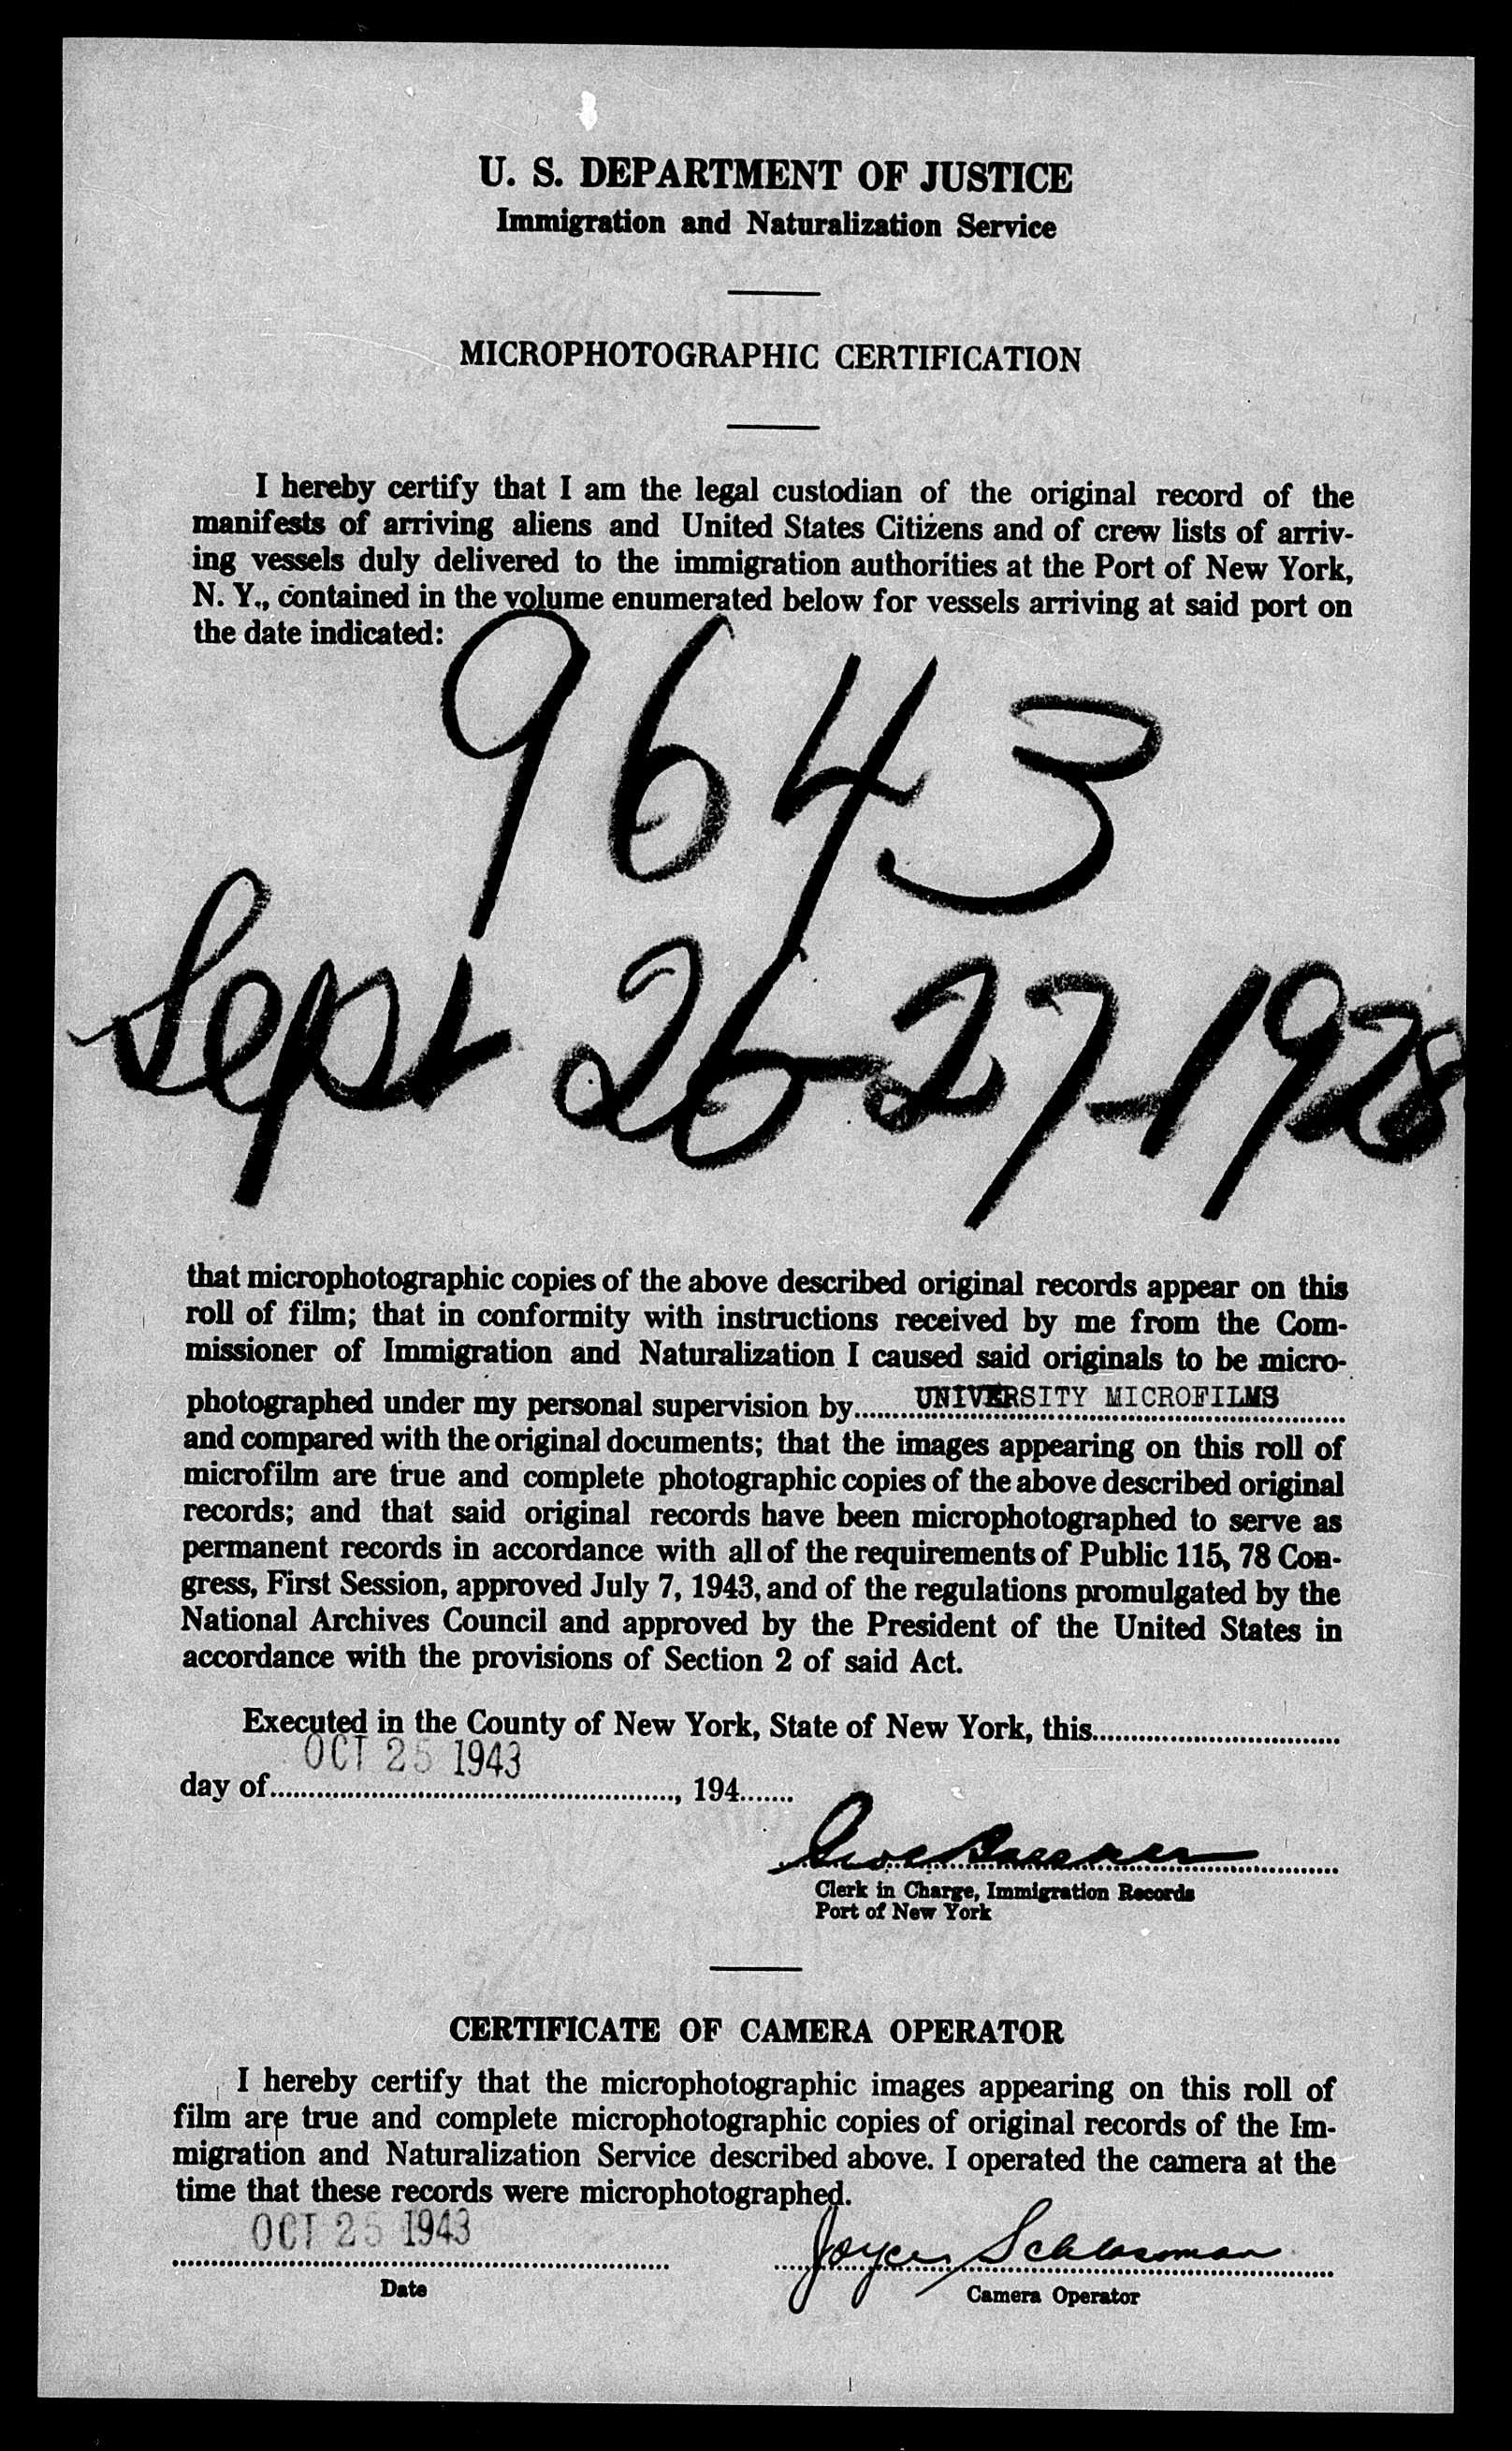 U. S. DEPARTMENT OF JUSTICE
Immigration and Naturalization Service
MICROPHOTOGRAPHIC CERTIFICATION
I hereby certify that I am the legal custodian of the original record of the
manifests of arriving aliens and United States Citizens and of crew lists of arriv-
ing vessels duly delivered to the immigration authorities at the Port of New York,
N. Y., contained in the volume enumerated below for vessels arriving at said port on
the date indicated:
9643
Sept 26-27-1928
that microphotographic copies of the above described original records appear on this
roll of film; that in conformity with instructions received by me from the Com-
missioner of Immigration and Naturalization I caused said originals to be micro-
photographed under my personal supervision by UNIVERSITY MICROFILMS
and compared with the original documents; that the images appearing on this roll of
microfilm are true and complete photographic copies of the above described original
records; and that said original records have been microphotographed to serve as
permanent records in accordance with all of the requirements of Public 115, 78 Con-
gress, First Session, approved July 7, 1943, and of the regulations promulgated by the
National Archives Council and approved by the President of the United States in
accordance with the provisions of Section 2 of said Act.
Executed in the County of New York, State of New York, this
OCT 25 1943
day of , 194
Clerk in Charge, Immigration Records
Port of New York
CERTIFICATE OF CAMERA OPERATOR
I hereby certify that the microphotographic images appearing on this roll of
film are true and complete microphotographic copies of original records of the Im-
migration and Naturalization Service described above. I operated the camera at the
time that these records were microphotographed.
OCT 25 1943
Joyce Schlossman
Date
Camera Operator